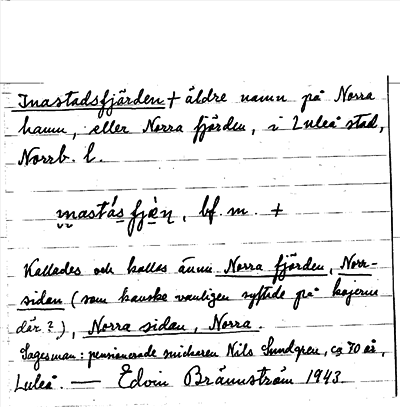 Inastadsfjärden + äldre namn på Norra
hamn, eller Norra fjärden, i Luleå stad,
Norrb. l.
ɯnastás fjæ̀ɳ, bf. m. +
Kallades och kallas ännu Norra fjärden, Norr-
sidan (som kanske vanligen syftade på kajerna
där?), Norra sidan, Norra.
Sagesman: pensionerade snickaren Nils Sundgren, ca 70 år,
Luleå. — Edvin Brännström 1943.